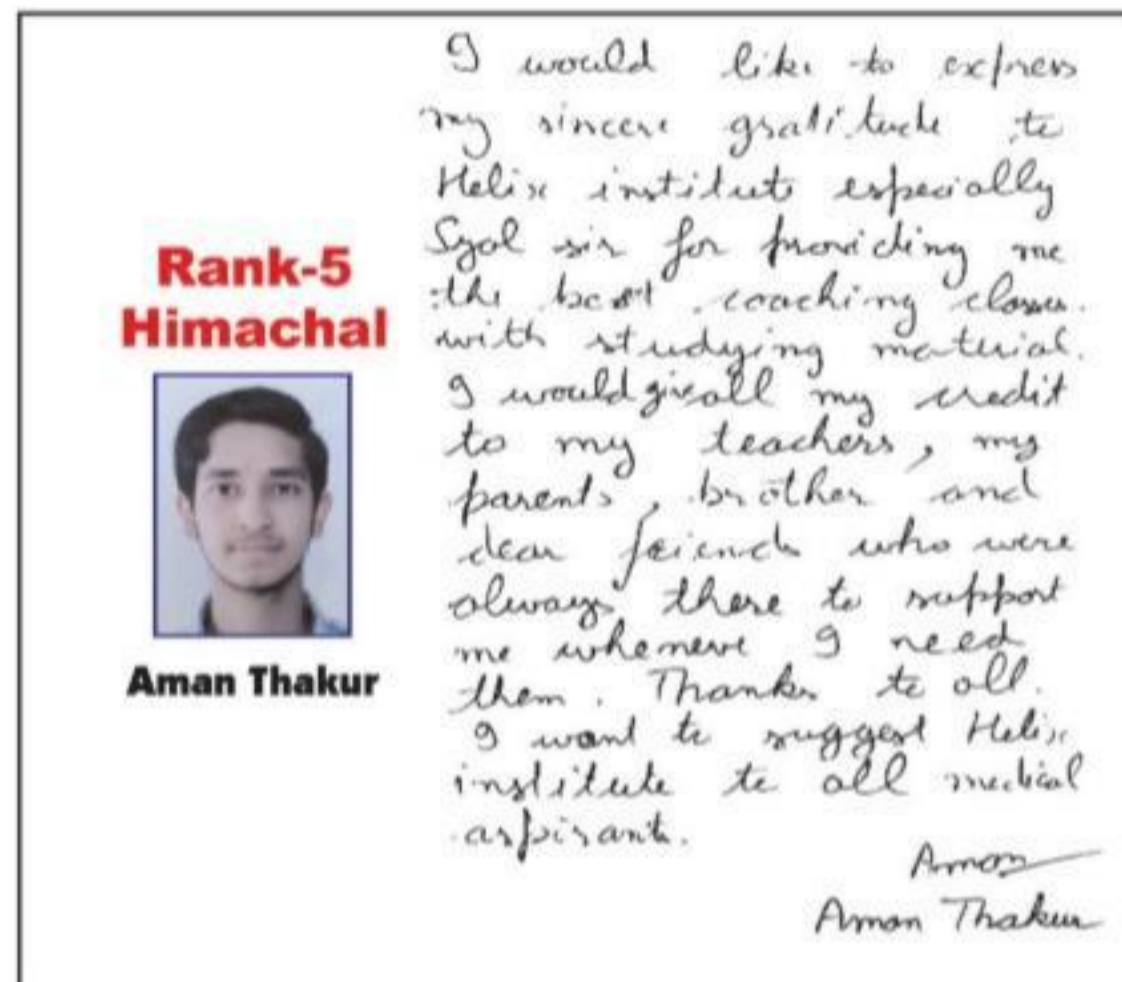 Rank-5
Himachal
Aman Thakur
I would like to express
my sincere gratitude to
Helix institute especially
Syal sir for providing me
the best coaching classes
with studying material.
I would give all my credit
to my teachers, my
parents, brother and
dear friends who were
always there to support
me whenever I need
them. Thanks to all.
I want to suggest Helix
institute to all medical
aspirants.
Aman
Aman Thakur